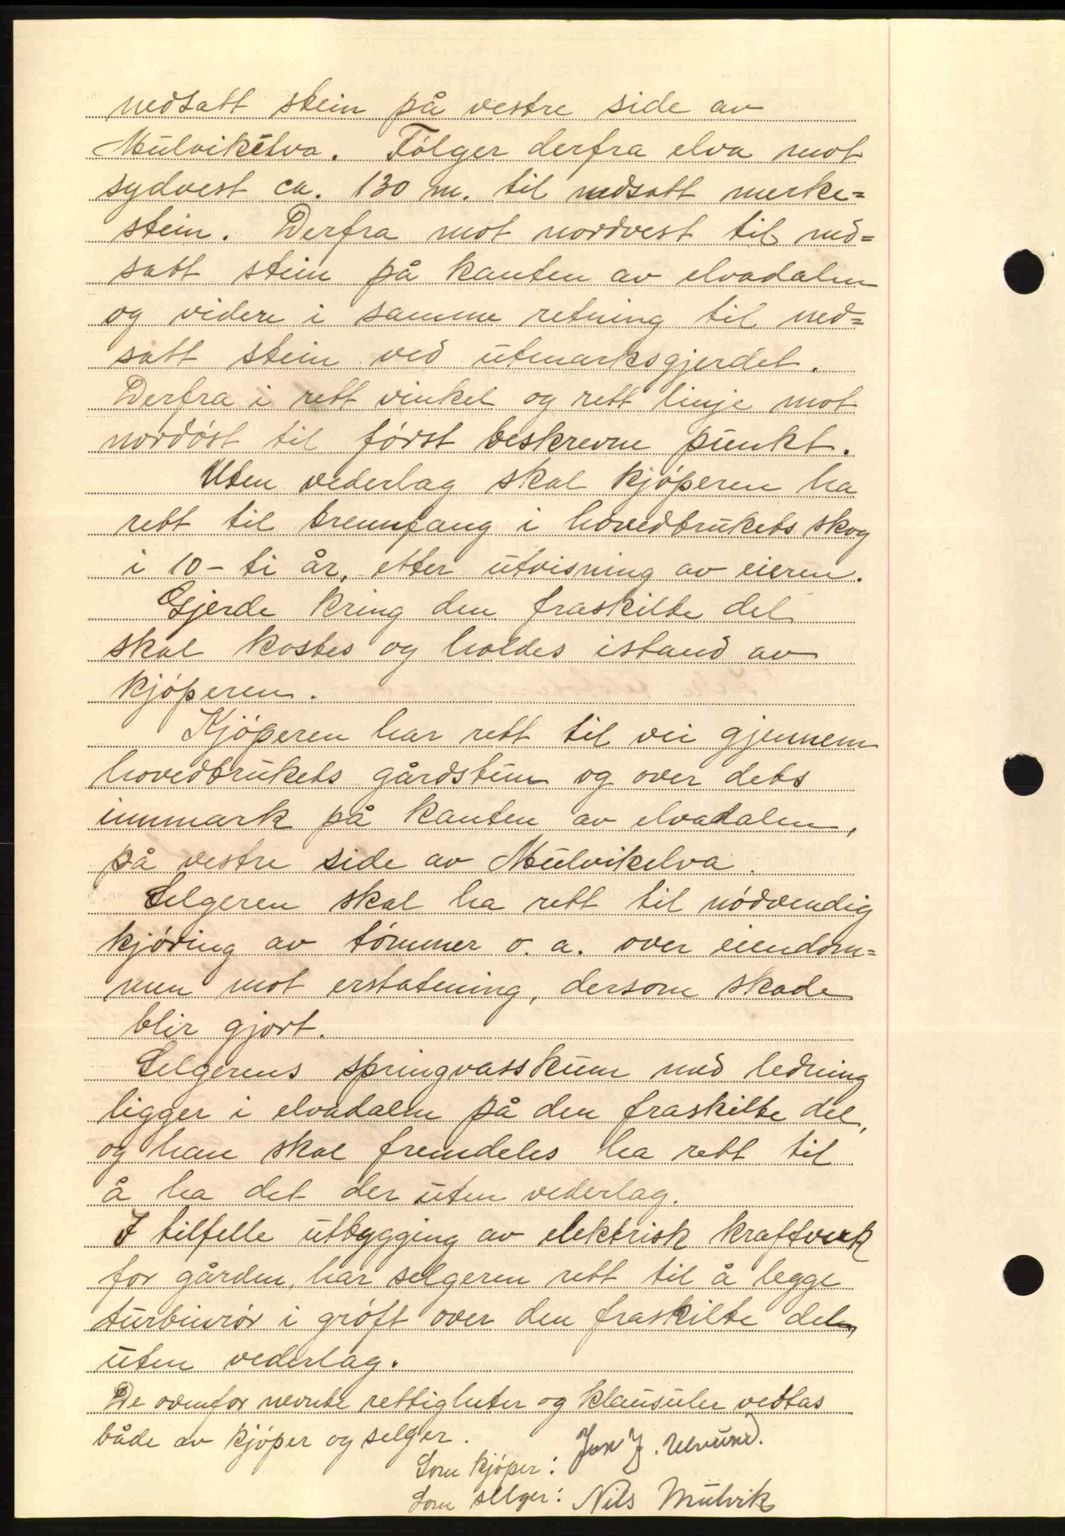 nedsatt stein på vestre side av
Mulvikelva. Følger derfra elva mot
sydvest ca. 130 m. til nedsatt merke=
stein. Derfra mot nordvest til ned=
satt stein på kanten av elvadalen
og videre i samme retning til ned=
satt stein ved utmarksgjerdet.
Derfra i rett vinkel og rett linje mot
nordøst til først beskrevne punkt.
Uten vederlag skal kjøperen ha
rett til brennfang i hovedbrukets skog
i 10 - ti år, etter utvisning av eieren.
Gjerde kring den fraskilte del
skal kostes og holdes istand av
kjøperen.
Kjøperen har rett til vei gjennem
hovedbrukets gårdstun og over dets
innmark på kanten av elvadalen,
på vestre side av Mulvikelva.
Selgeren skal ha rett til nødvendig
kjøring av tømmer o. a. over eiendom=
men mot erstatning, dersom skade
blir gjort.
Selgerens springvasskum med ledning
ligger i elvadalen på den fraskilte del,
og han skal fremdeles ha rett til
å ha det der uten vederlag.
I tilfelle utbygging av elektrisk kraftverk
for gården, har selgeren rett til å legge
turbinrør i grøft over den fraskilte del
uten vederlag.
De ovenfor nevnte rettigheter og klausuler vedtas
både av kjøper og selger.
Som kjøper: Jon J. Ulvund.
Som selger: Nils Mulvik